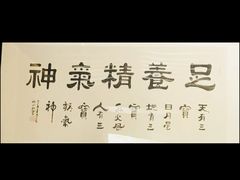 足養精氣神
天有三
寶
日月星
地有三
寶
水火風
人有三
寶
精氣
神